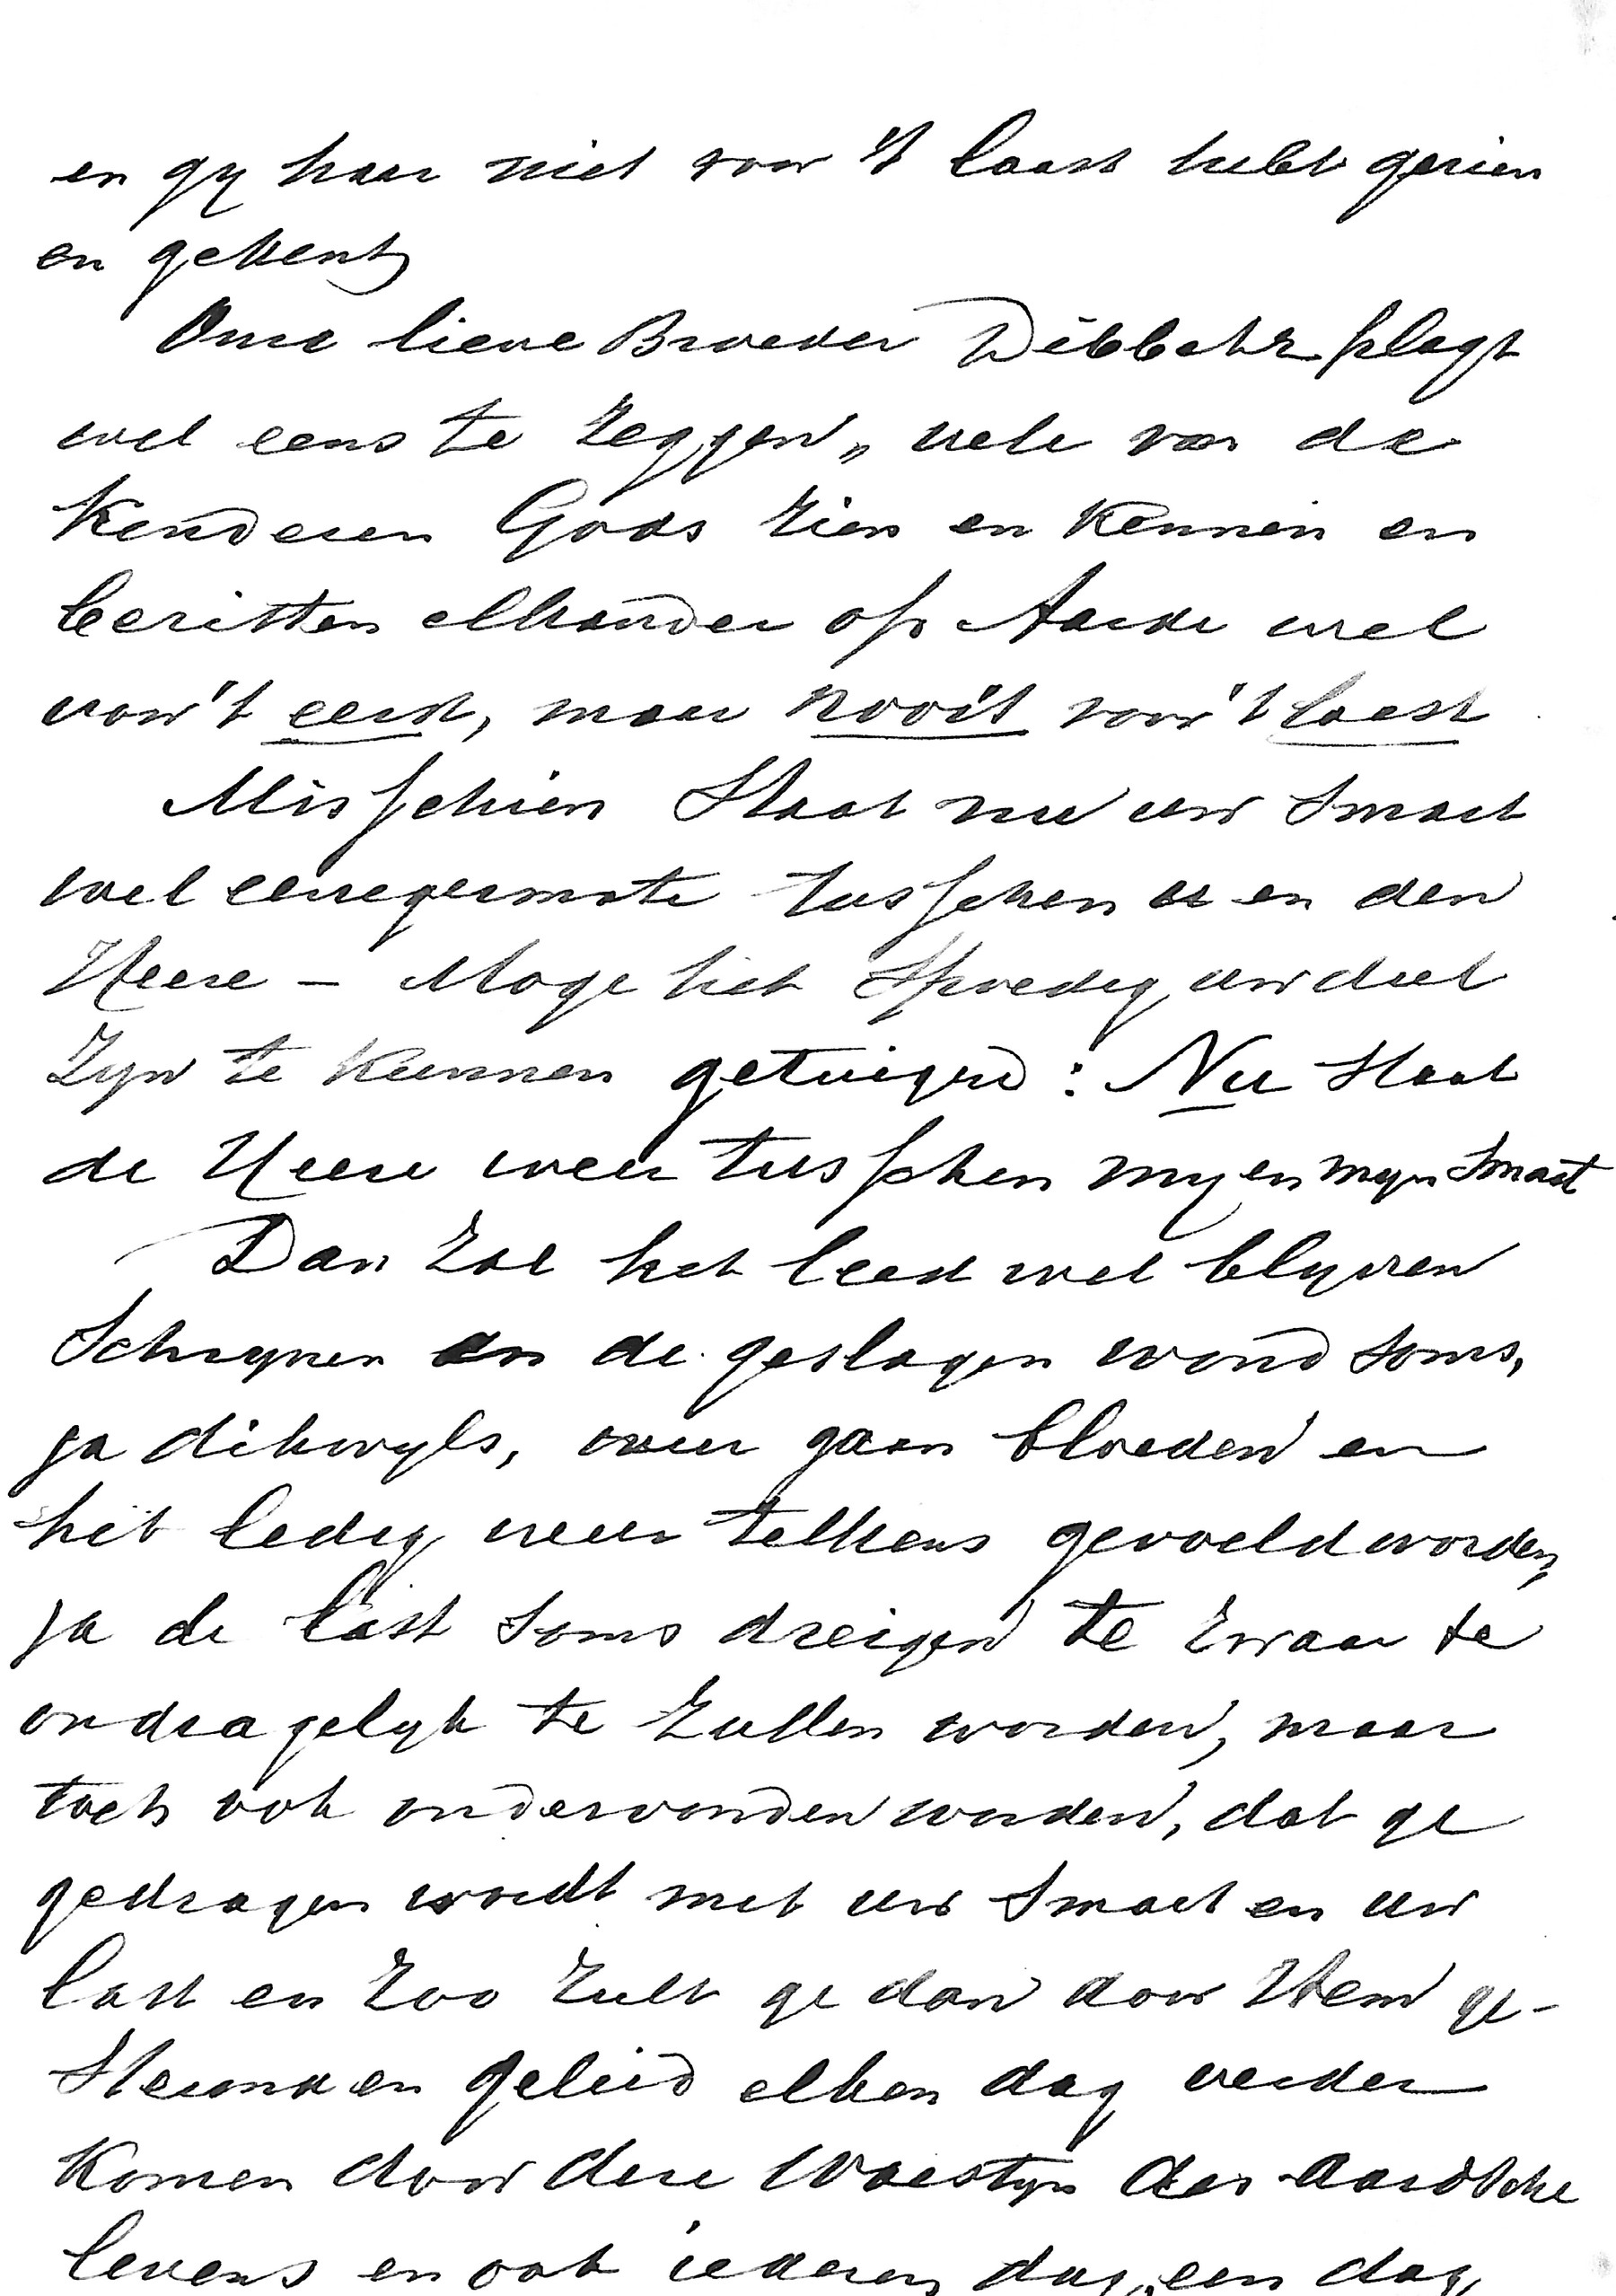 en gy haar niet voor 't laast hebt gezien
en gekent
Onze lieve Broeder Dibbetz plagt
wel eens te zeggen „ vele van de
Kinderen Gods zien en kennen en
bezitten elkander op Aarde wel
voor 't eerst, maar nooit voor 't laast
Misschien Staat nu uw Smart
wel eenegermate tusschen u en den
Heere – Moge het Spoedig uw deel
Zyn te Kunnen getuigen : Nu Staat
de Heere weer tusschen my en myn Smart
Dan zal het leed wel blyven
Schrynen en de geslagen wond soms,
ja dikwyls, weer gaan bloeden en
het ledig weer telkens gevoeld worden,
ja de last soms dreigen te zwaar te
ondragelyk te zullen worden, maar
toch ook ondervonden worden, dat ge
gedragen wordt met uw Smart en uw
last en zoo zult ge dan door Hem ge-
Steund en geleid elken dag verder
Komen door deze Woestyn des aardsche
levens en ook iederen dag, een dag